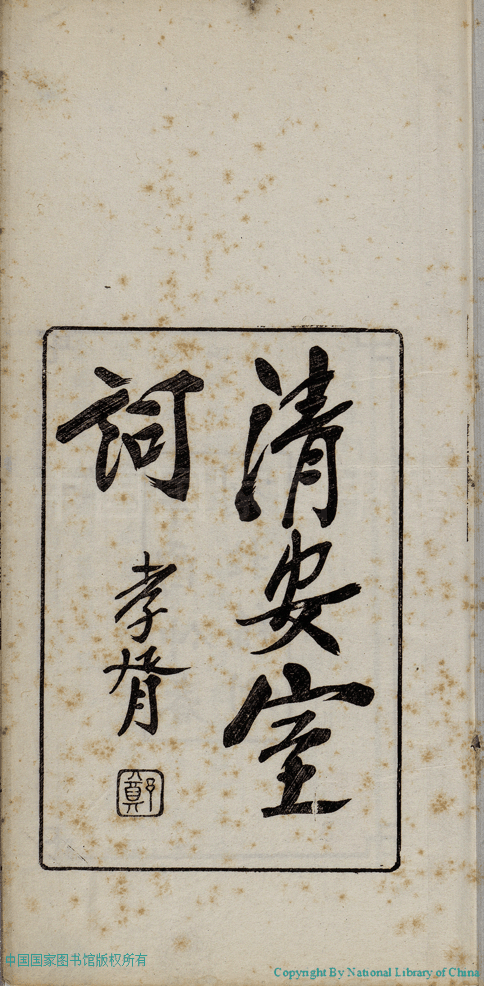 清安室
詞
孝胥
鄭
中国国家图书馆版权所有
Copyright By National Library of China